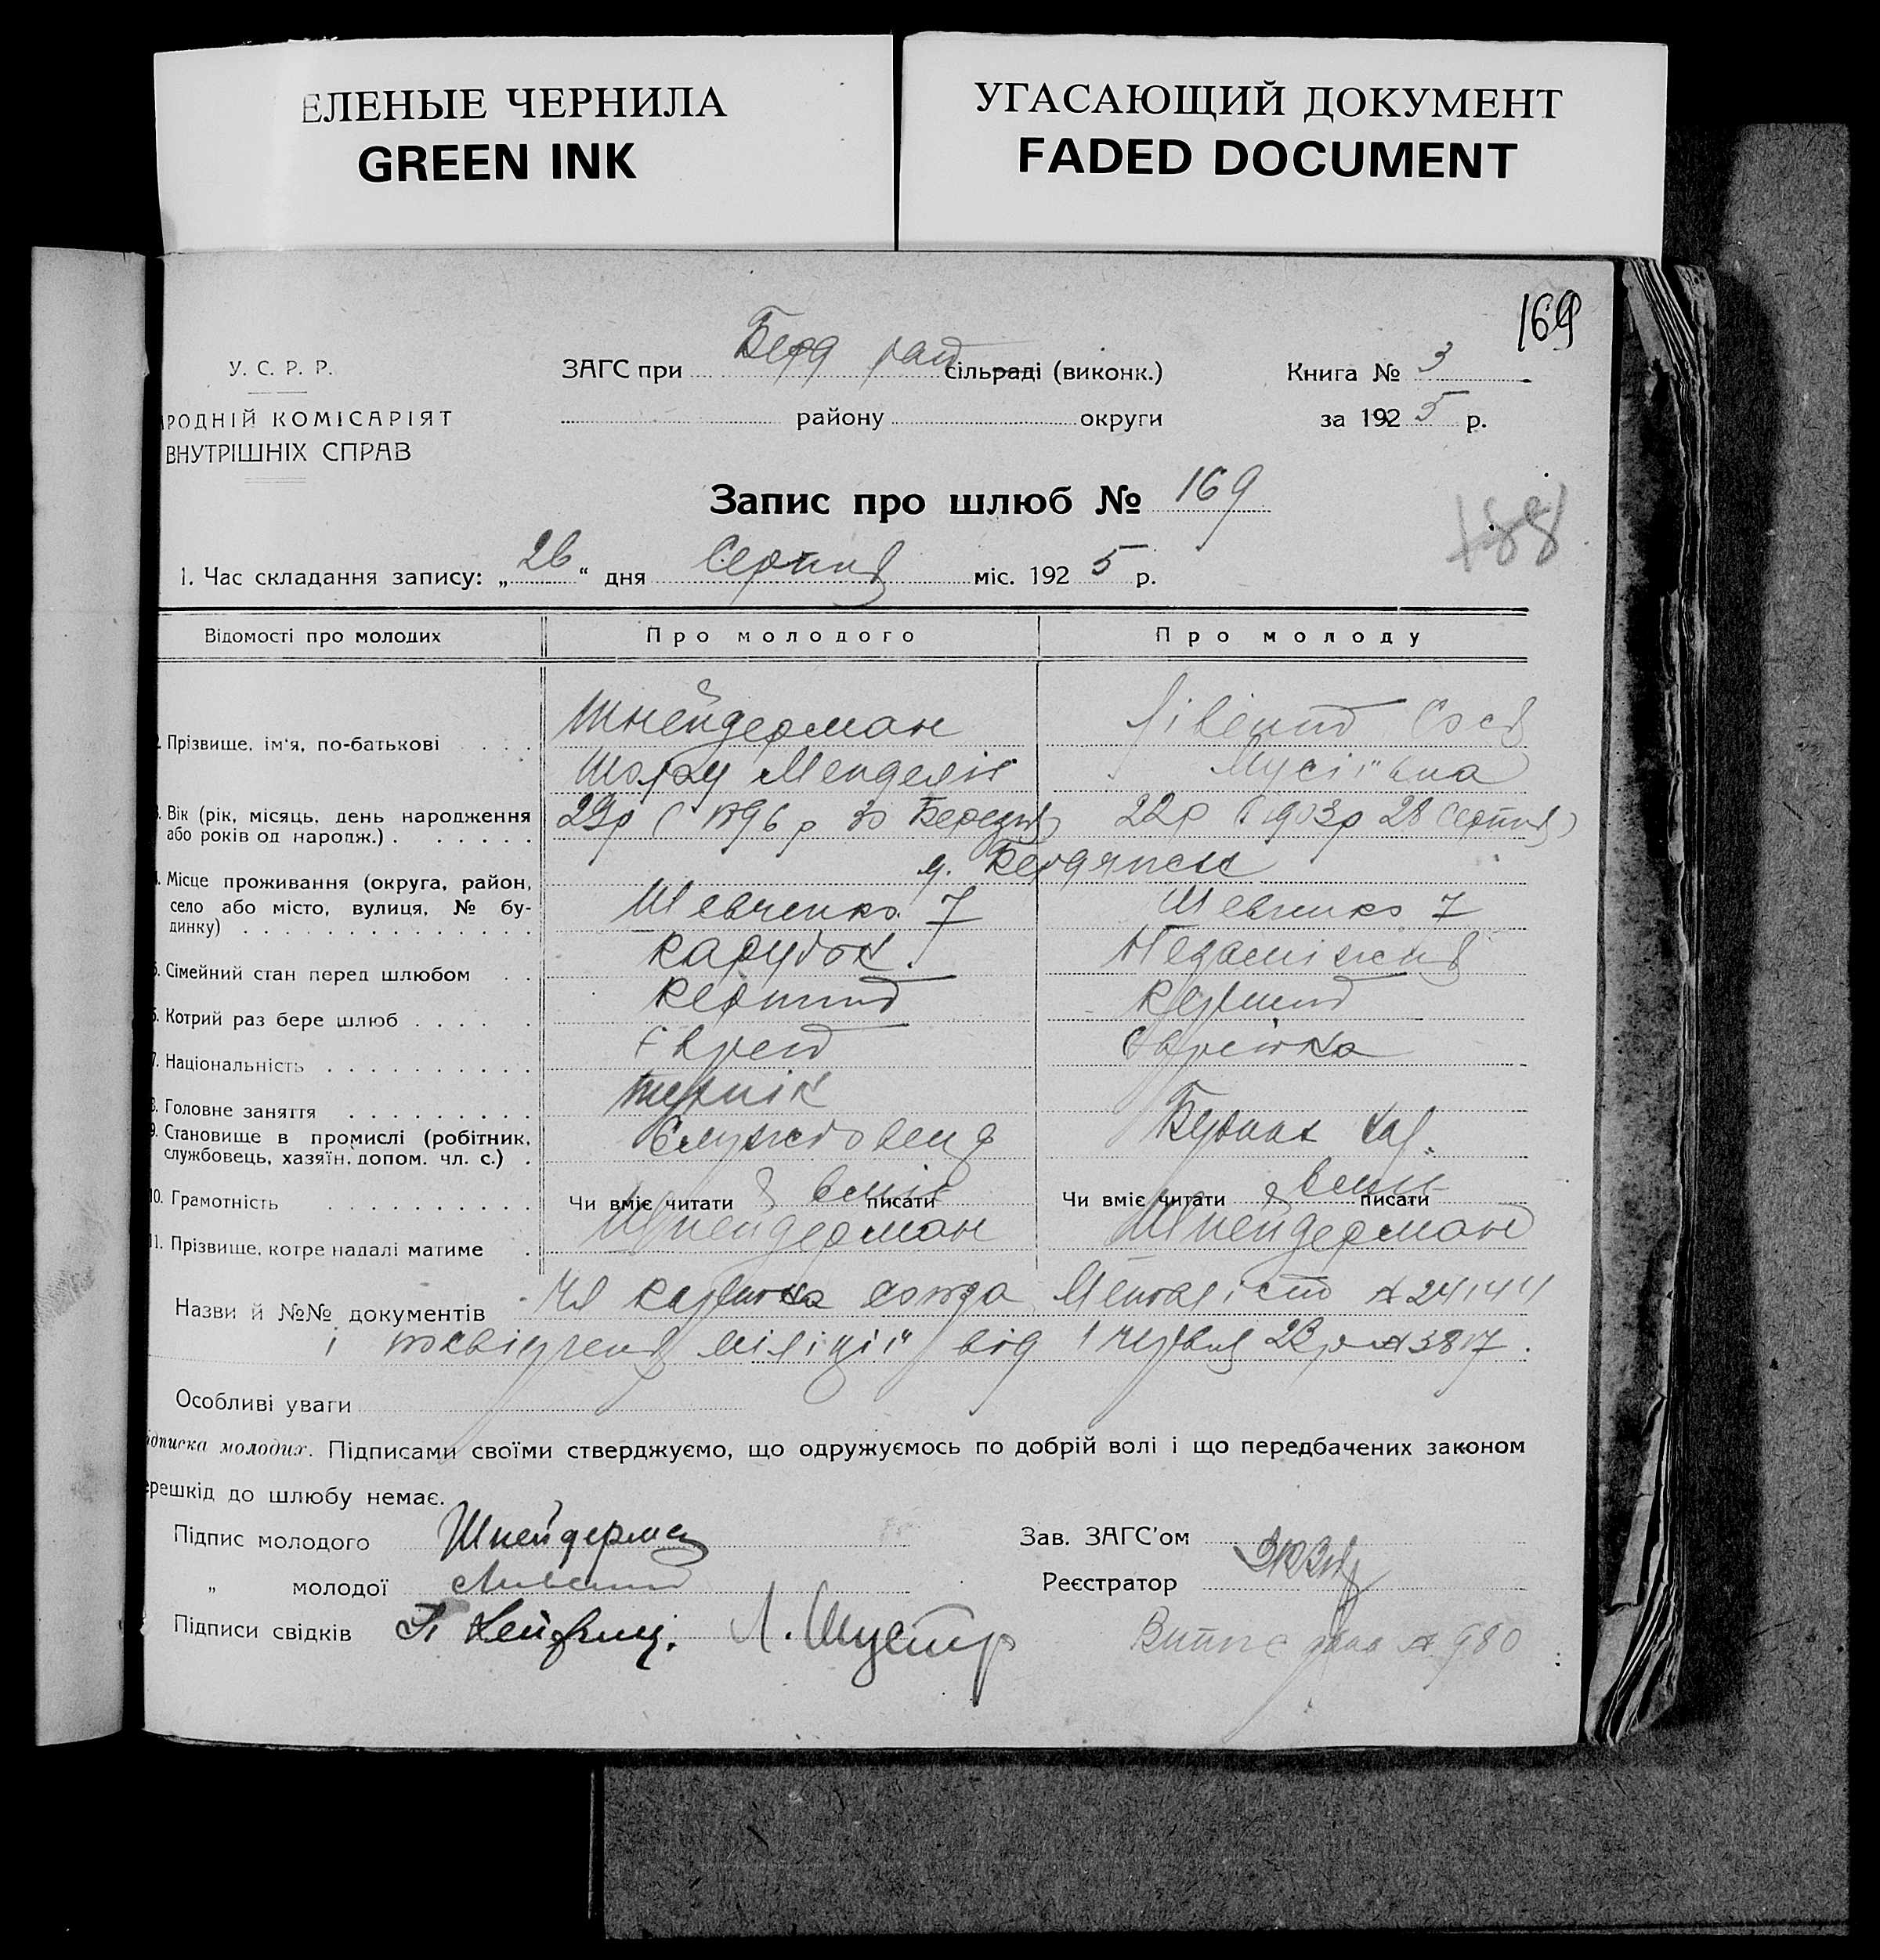 ЕЛЕНЫЕ ЧЕРНИЛА
GREEN INK
УГАСАЮЩИЙ ДОКУМЕНТ
FADED DOCUMENT
169
У. С. Р. Р.
РОДНІЙ КОМІСАРІЯТ
ВНУТРІШНІХ СПРАВ
ЗАГС при Берд рай сільраді (виконк.)
району округи
Книга № 3
за 1925 р.
Запис про шлюб № 169
188
1. Час складання запису: „26“ дня Серпня міс. 1925 р.
Відомості про молодих Про молодого Про молоду
2. Прізвище, ім'я, по-батькові
Шнейдерман
Менделів
Мусіївна
3. Вік (рік, місяць, день народження або років од народж.)
29р (1896 р 30 Березня) 22р (1903р 28 Серпня)
4. Місце проживання (округа, район, село або місто, вулиця, № будинку)
м. Бердянськ
Шевченко 7 Шевченко 7
5. Сімейний стан перед шлюбом
парубок Незаміжня
6. Котрий раз бере шлюб
перший перший
7. Національність
Єврей Єврейка
8. Головне заняття
технік
9. Становище в промислі (робітник, службовець, хазяїн, допом. чл. с.)
Службовець
10. Грамотність Чи вміє читати й вміє писати Чи вміє читати й вміє писати
11. Прізвище, котре надалі матиме
Шнейдерман Шнейдерман
Назви й №№ документів
Чл карточка союза Металістів № 24144
і посвідчення міліції від 1 червня 23 р № 3817.
Особливі уваги
ідписка молодих. Підписами своїми стверджуємо, що одружуємось по добрій волі і що передбачених законом
ерешкід до шлюбу немає.
Підпис молодого Шнейдерман
„ молодої
Підписи свідків Л. Шустер
Зав. ЗАГС'ом
Реєстратор
Витяг дано № 980